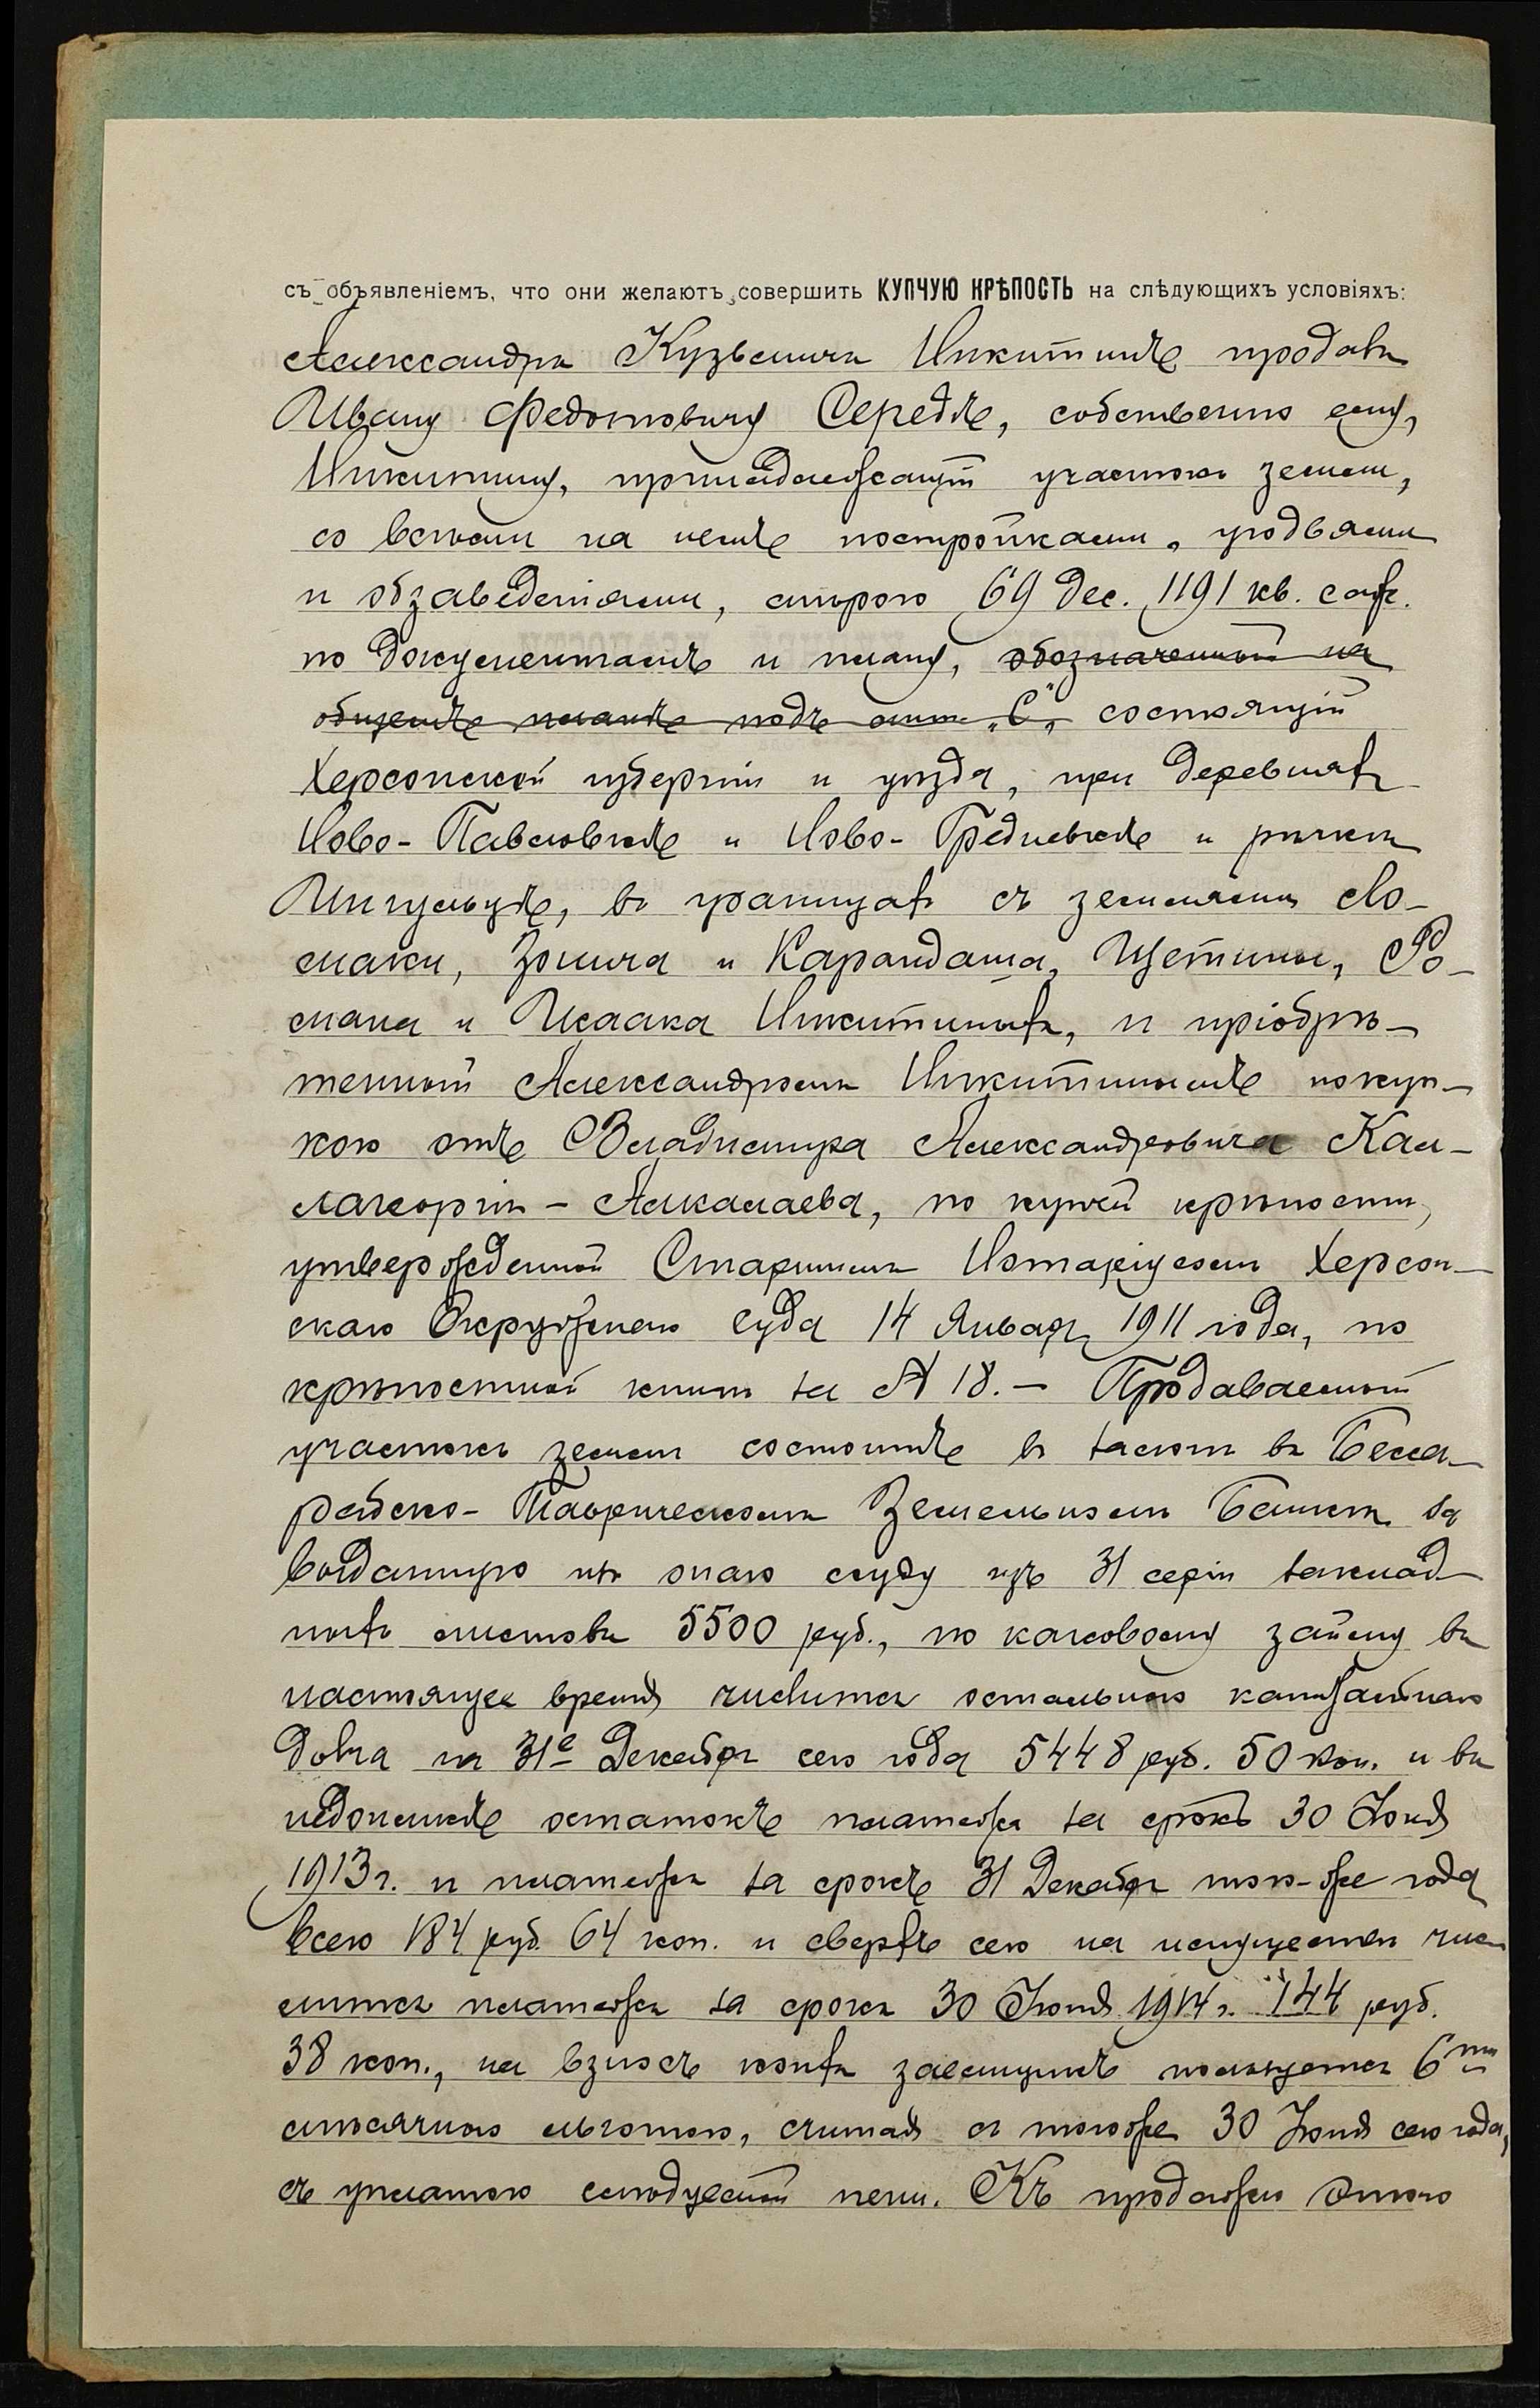 съ объявленіемъ, что они желаютъ совершить КУПЧУЮ КРѢПОСТЬ на слѣдующихъ условіяхъ:
Александръ Кузьмичъ Никитинъ продалъ
Ивану Федотовичу Середѣ, собственно ему,
Никитину, принадлежащій участокъ земли,
со всѣми на немъ постройками, угодьями
и обзаведеніями, мѣрою 69 дес. 1191 кв. саж.
по документамъ и плану, обозначенный на
общемъ планѣ подъ лит. „С", состоящій
Херсонской губерніи и уѣзда, при деревняхъ
Ново-Павловкѣ и Ново-Гредневкѣ и рѣчкѣ
Ингульцѣ, въ границахъ съ землями Ло-
маки, и Карандаша, Щетины, Ро-
мана и Исаака Никитиныхъ, и пріобрѣ-
тенный Александромъ Никитинымъ покуп-
кою отъ Владиміра Александровича Кал-
лагеорги-Алкалаева, по купчей крѣпости,
утвержденной Старшимъ Нотаріусомъ Херсон-
скаго Окружнаго Суда 14 Января 1911 года, по
крѣпостной книгѣ за № 18. — Продаваемый
участокъ земли состоитъ въ залогѣ въ Бесса-
рабско-Таврическомъ Земельномъ Банкѣ за
выданную изъ онаго ссуду изъ 31 серіи заклад
ныхъ листовъ 5500 руб., по каковому займу въ
настоящее время числится остальнаго капитальнаго
долга на 31е Декабря сего года 5448 руб. 50 коп. и въ
недоимкѣ остатокъ платежа за срокъ 30 Іюня
1913 г. и платежъ за срокъ 31 Декабря того-же года
всего 184 руб. 64 коп. и сверхъ сего на имуществѣ чис
лится платежъ за срокъ 30 Іюня 1914 г. 144 руб.
38 коп., на взносъ коихъ заемщикъ пользуется 6ти
мѣсячною льготою, считая съ того же 30 Іюня сего года,
съ уплатою слѣдуемой пени. Къ продажѣ этого